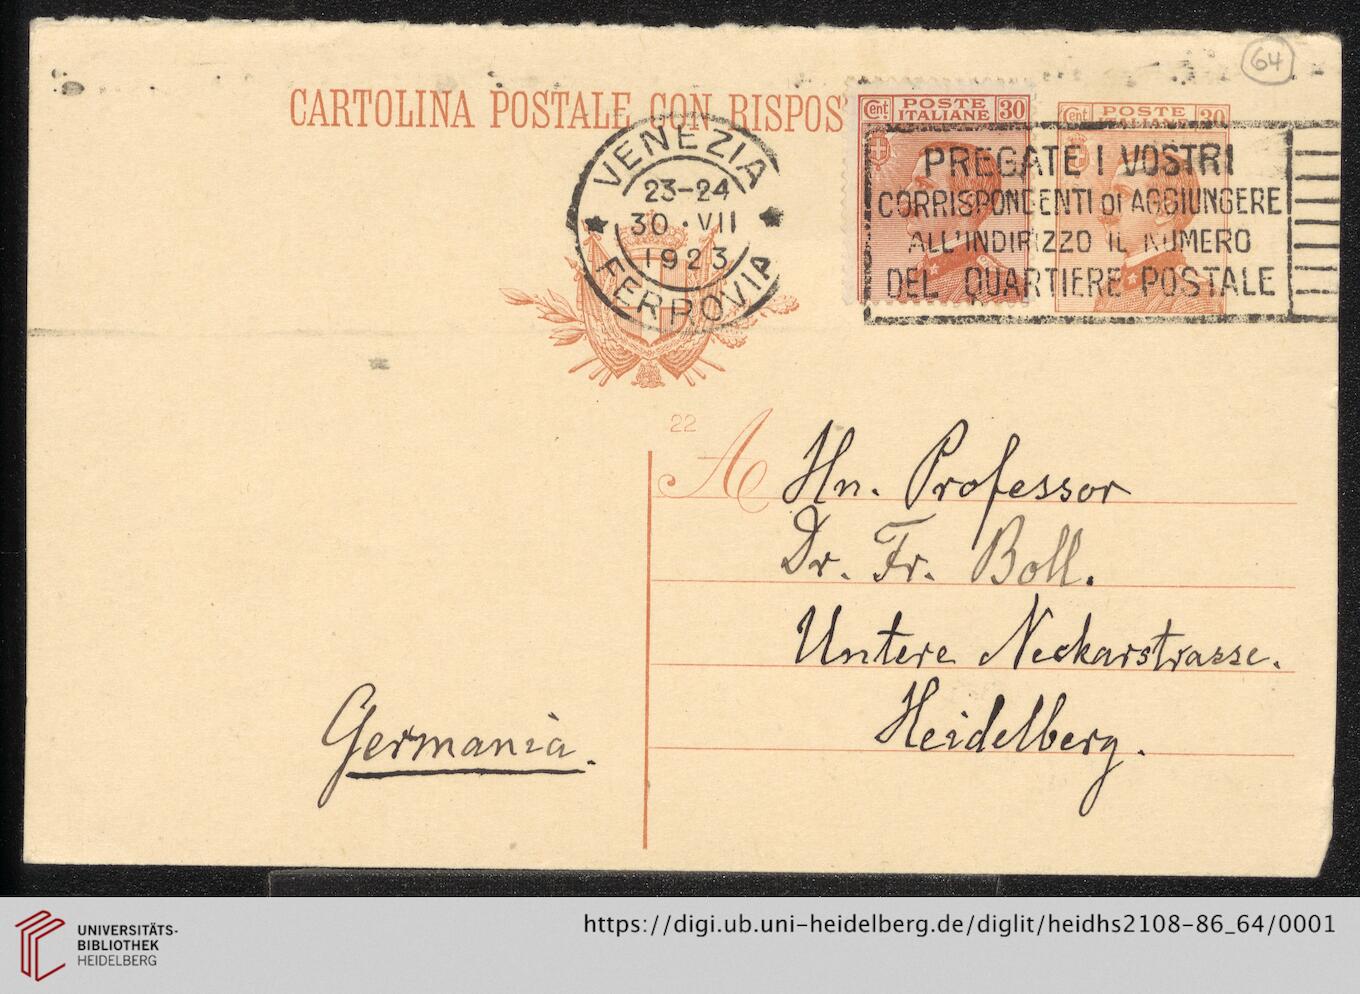 64
CARTOLINA POSTALE CON RISPOS
Cent POSTE ITALIANE 30
Cent POSTE ITALIANE 30
VENEZIA
23-24
30·VII
1923
FERROVIA
PREGATE I VOSTRI
CORRISPONDENTI DI AGGIUNGERE
ALL'INDIRIZZO IL NUMERO
DEL QUARTIERE POSTALE
22
A Hn. Professor
Dr. Fr. Boll.
Untere Neckarstrasse.
Heidelberg.
Germania.
UNIVERSITÄTS-
BIBLIOTHEK
HEIDELBERG
https://digi.ub.uni-heidelberg.de/diglit/heidhs2108-86_64/0001